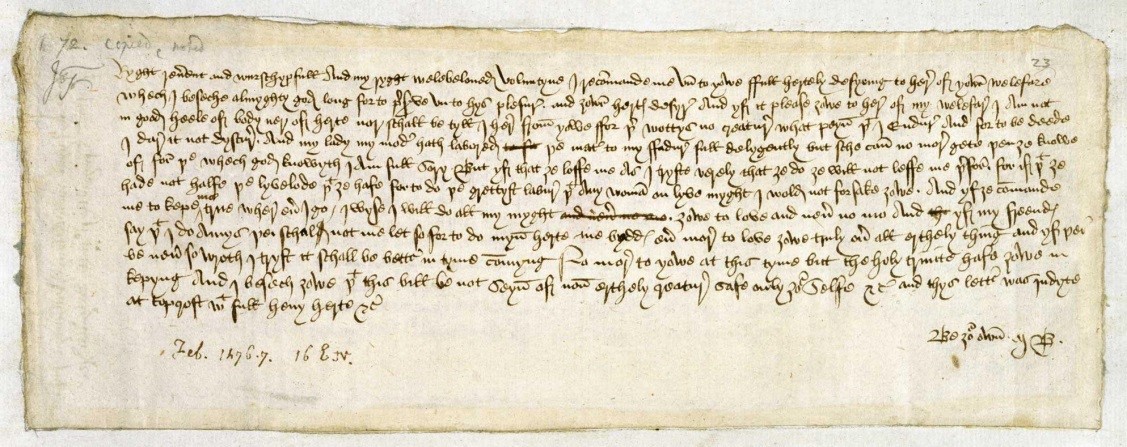 72. copied, noted
23
Ryght reu̅ent and wurschypfull And my ryght welebeloued Voluntyne I recom̅ande me vn to yowe ffull hertely desyring to herꝭ of yowr̅ welefare
whech I beseche almyghty god long for to p̅serve vn to hys plesur̅ and ȝowr̅ herts desyr̅ And yf it please ȝowe to her̅ of my welefar̅ I Am not
in good heele of body ner of herte nor schall be tyll I her̅ from yowe ffor þr wottys no creatur̅ what peyn þt I Endur̅ And for to be deede
I dar̅ it not dyscur̅. And my lady my modr̅ hath labored þe matr̅ to my ffadur̅ full delygently but sche can no mor̅ gete þen ȝe knowe
of for þe whech god knowyth I am full sory But yf that ȝe loffe me As I tryste verely that ȝe do ȝe will not leffe me þrfor̅. for if þt ȝe
hade not halfe þe lyvelode þt ȝe hafe for to do þe grettyst labur̅ þt Any woman on lyve myght I wold not forsake ȝowe. And yf ȝe com̅ande
me to kepe me true wher̅ eu̅ I go / I wyse I will do all my myght ȝowe to love and neu̅ no mo And yf my freendꝭ
say þt I do Amys þei schal not me let so for to do myn̅ herte me byddꝭ eu̅ mor̅ to love ȝowe truly ou̅ all erthely thing and yf þei
be neu̅ so wroth I tryst it schall be bettr̅ in tyme com̅yng No mor̅ to yowe at this tyme but the holy trinite hafe ȝowe in
kepyng And I besech ȝowe þt this bill be not seyn̅ of non̅ erthely creatur̅ safe only ȝor̅ Selfe &c And thys lettr̅ was Indyte
at topcroft wt full hevy herte &c
Be ȝor own̅ M B.
Feb. 1476-7. 16 E. IV.